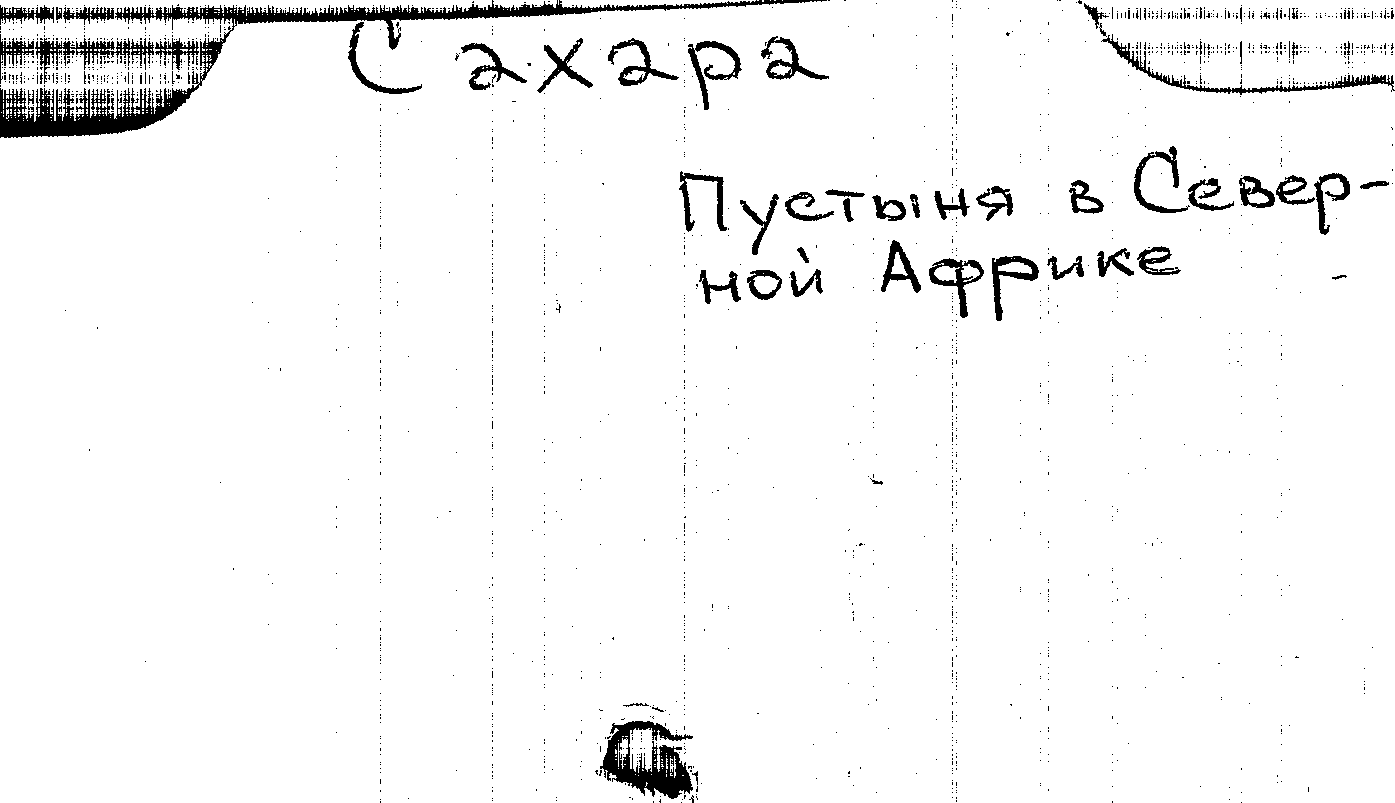 Сахара
Пустыня в Север-
ной Африке